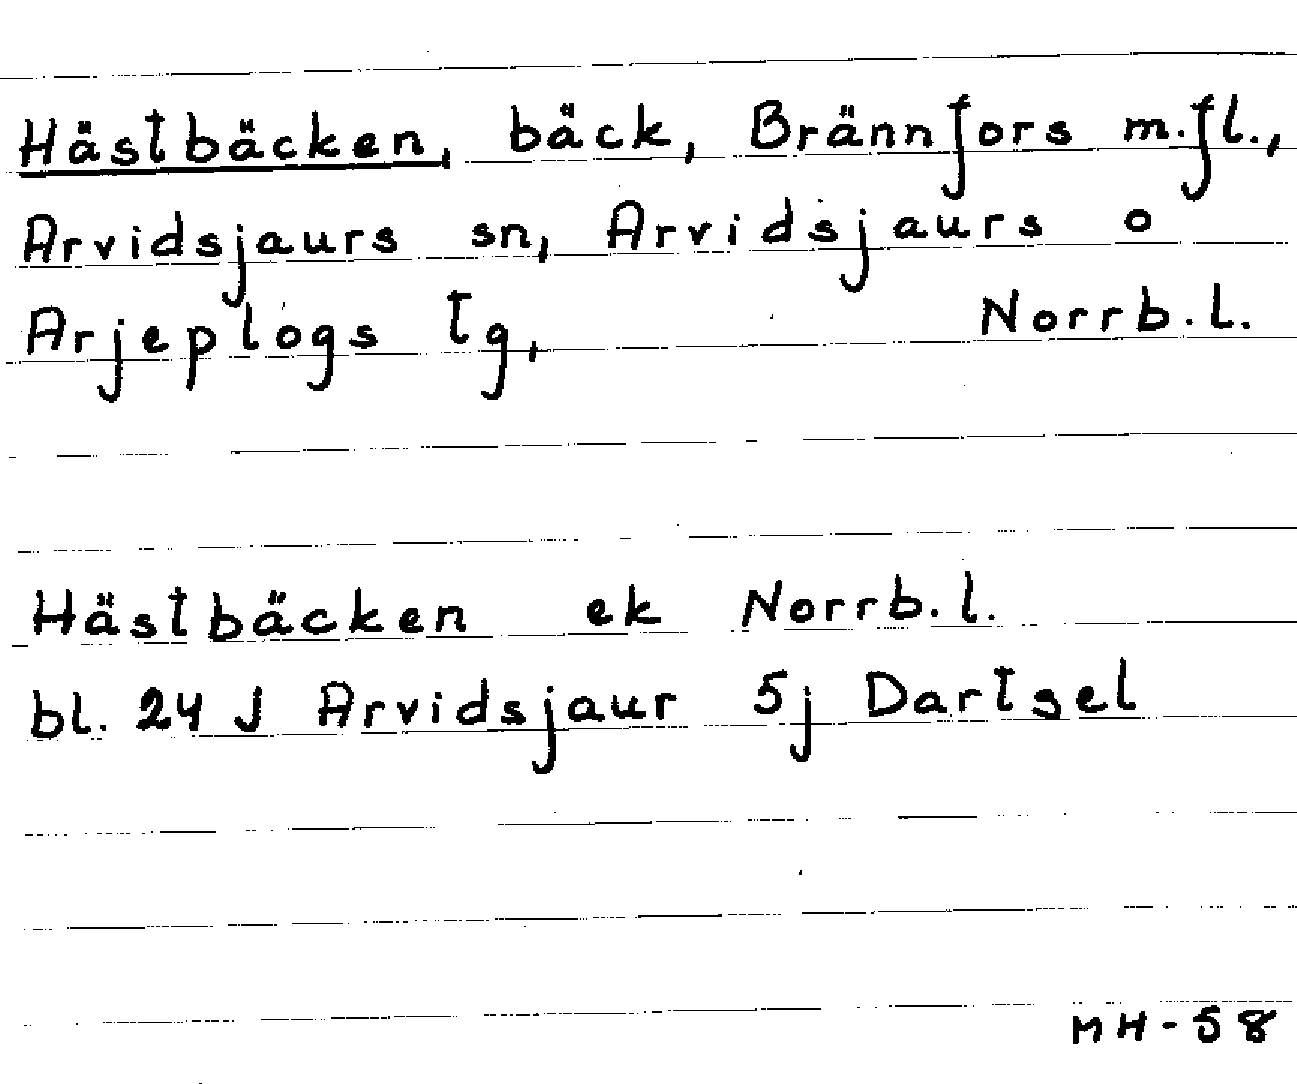 Hästbäcken, bäck, Brännfors m.fl.,
Arvidsjaurs sn, Arvidsjaurs o
Arjeplogs tg, Norrb.l.
Hästbäcken ek Norrb.l.
bl. 24 J Arvidsjaur 5j Dartsel
MH-58